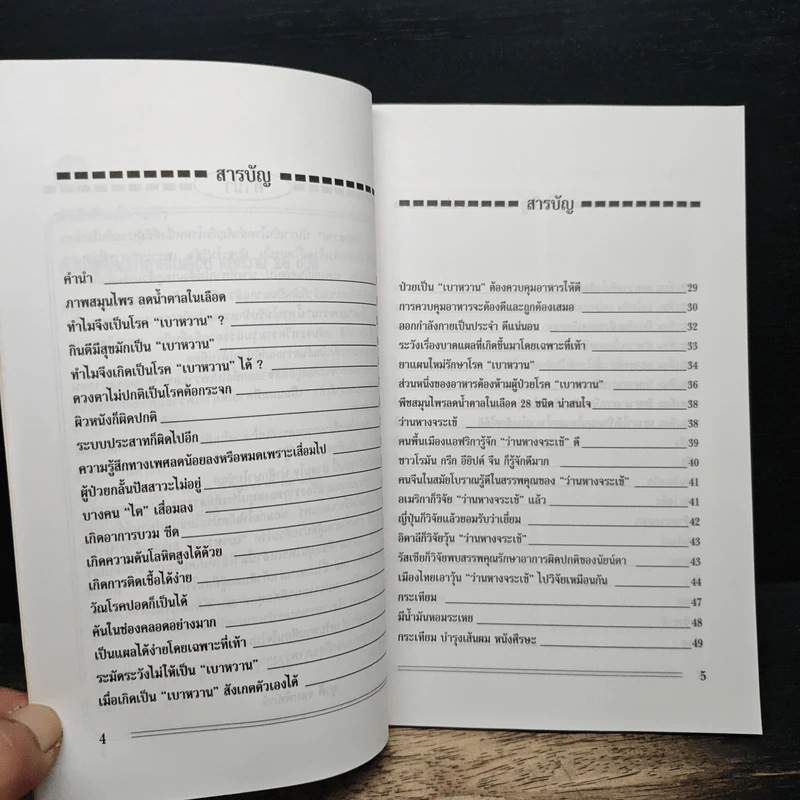 สารบัญ
คำนำ
ภาพสมุนไพร ลดน้ำตาลในเลือด
ทำไมจึงเป็นโรค "เบาหวาน" ?
กินดีมีสุขมักเป็น "เบาหวาน"
ทำไมจึงเกิดเป็นโรค "เบาหวาน" ได้ ?
ดวงตาไม่ปกติเป็นโรคต้อกระจก
ผิวหนังก็ผิดปกติ
ระบบประสาทก็ผิดไปอีก
ความรู้สึกทางเพศลดน้อยลงหรือหมดเพราะเสื่อมไป
ผู้ป่วยกลั้นปัสสาวะไม่อยู่
บางคน "ไต" เสื่อมลง
เกิดอาการบวม ซีด
เกิดความดันโลหิตสูงได้ด้วย
เกิดการติดเชื้อได้ง่าย
วัณโรคปอดก็เป็นได้
คันในช่องคลอดอย่างมาก
เป็นแผลได้ง่ายโดยเฉพาะที่เท้า
ระมัดระวังไม่ให้เป็น "เบาหวาน"
เมื่อเกิดเป็น "เบาหวาน" สังเกตตัวเองได้
4
สารบัญ
ป่วยเป็น "เบาหวาน" ต้องควบคุมอาหารให้ดี 29
การควบคุมอาหารจะต้องดีและถูกต้องเสมอ 30
ออกกำลังกายเป็นประจำ ดีแน่นอน 32
ระวังเรื่องบาดแผลที่เกิดขึ้นมาโดยเฉพาะที่เท้า 33
ยาแผนใหม่รักษาโรค "เบาหวาน" 34
ส่วนหนึ่งของอาหารต้องห้ามผู้ป่วยโรค "เบาหวาน" 36
พืชสมุนไพรลดน้ำตาลในเลือด 28 ชนิด น่าสนใจ 38
ว่านหางจระเข้ 38
คนพื้นเมืองแอฟริการู้จัก "ว่านหางจระเข้" ดี 39
ชาวโรมัน กรีก อียิปต์ จีน ก็รู้จักดีมาก 40
คนจีนในสมัยโบราณรู้ดีในสรรพคุณของ "ว่านหางจระเข้" 41
อเมริกาก็วิจัย "ว่านหางจระเข้" แล้ว 41
ญี่ปุ่นก็วิจัยแล้วยอมรับว่าเยี่ยม 42
อิตาลีก็วิจัยวุ้น "ว่านหางจระเข้" 43
รัสเซียก็วิจัยพบสรรพคุณรักษาอาการผิดปกติของนัยน์ตา 43
เมืองไทยเอาวุ้น "ว่านหางจระเข้" ไปวิจัยเหมือนกัน 44
กระเทียม 47
มีน้ำมันหอมระเหย 48
กระเทียม บำรุงเส้นผม หนังศีรษะ 49
5